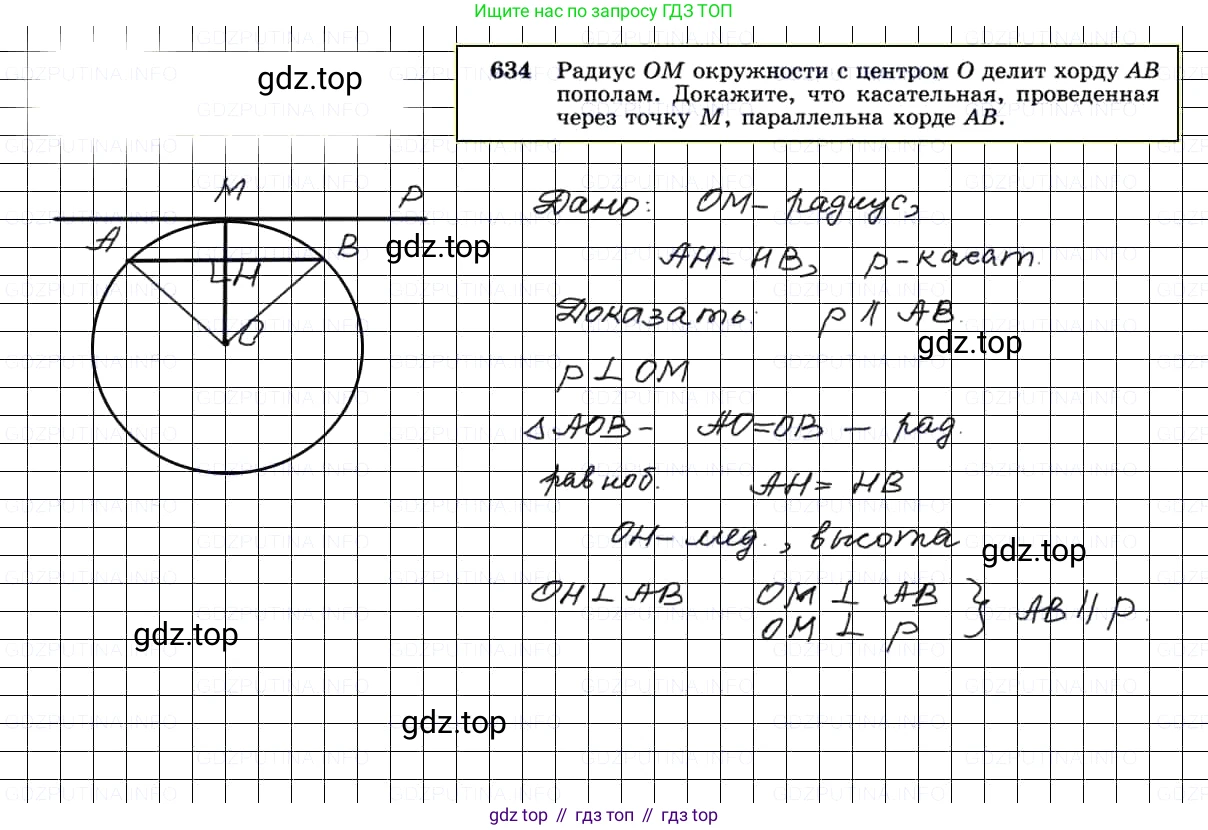 Ищите нас по запросу ГДЗ ТОП
gdz.top
634 Радиус OM окружности с центром O делит хорду AB
пополам. Докажите, что касательная, проведенная
через точку M, параллельна хорде AB.
M
P
A
B
gdz.top
H
O
Дано: OM - радиус,
AH = HB, p - касат.
Доказать: p ∥ AB.
gdz.top
p ⊥ OM
△ AOB - AO = OB - рад.
равноб. AH = HB
OH - мед., высота
gdz.top
OH ⊥ AB OM ⊥ AB } AB ∥ p.
OM ⊥ p
gdz.top
gdz.top
gdz top // гдз топ // gdz top
GDZPUTINA.INFO